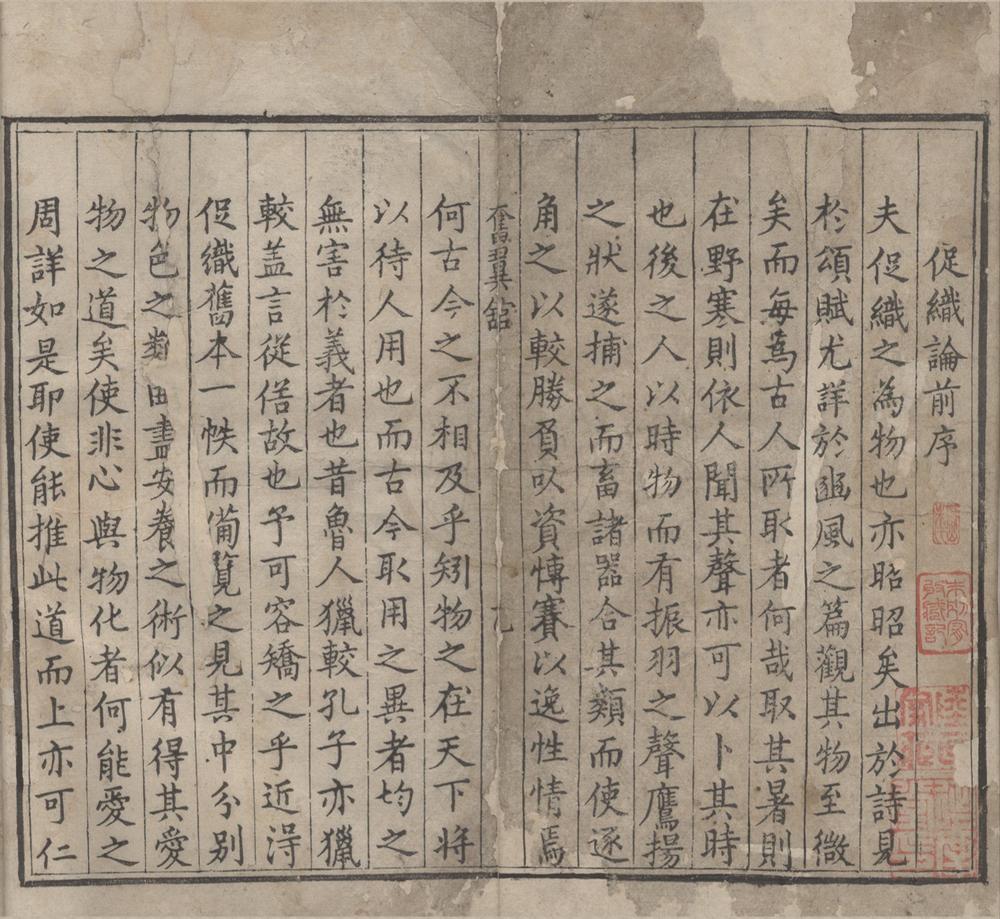 促織論前序
夫促織之為物也亦昭昭矣出於詩見
於頌賦尤詳於豳風之篇觀其物至微
矣而每為古人所取者何哉取其暑則
在野寒則依人聞其聲亦可以卜其時
也後之人以時物而有振羽之聲鷹揚
之狀遂捕之而畜諸器合其類而使逐
角之以較勝負以資慱賽以逸性情焉
奮翼館
何古今之不相及乎矧物之在天下将
以待人用也而古今取用之異者均之
無害於義者也昔魯人獵較孔子亦獵
較盖言從俗故也予可容矯之乎近淂
促織舊本一帙而備覽之見其中分别
物色之類 畫安養之術似有得其愛
物之道矣使非心與物化者何能愛之
周詳如是耶使能推此道而上亦可仁